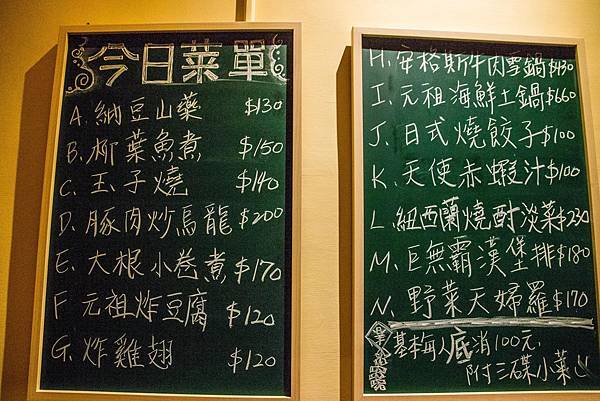 今日菜單
A. 納豆山藥 $130
B. 柳葉魚煮 $150
C. 玉子燒 $140
D. 豚肉炒烏龍 $200
E. 大根小卷煮 $170
F 元祖炸豆腐 $120
G. 炸雞翅 $120
H. 安格斯牛肉壽鍋 $430
I. 元祖海鮮土鍋 $660
J. 日式燒餃子 $100
K. 天使赤蝦汁 $100
L. 紐西蘭燒酎淡菜 $230
M. 巨無霸漢堡排 $180
N. 野菜天婦羅 $170
基本每人底消100元.
附三碟小菜